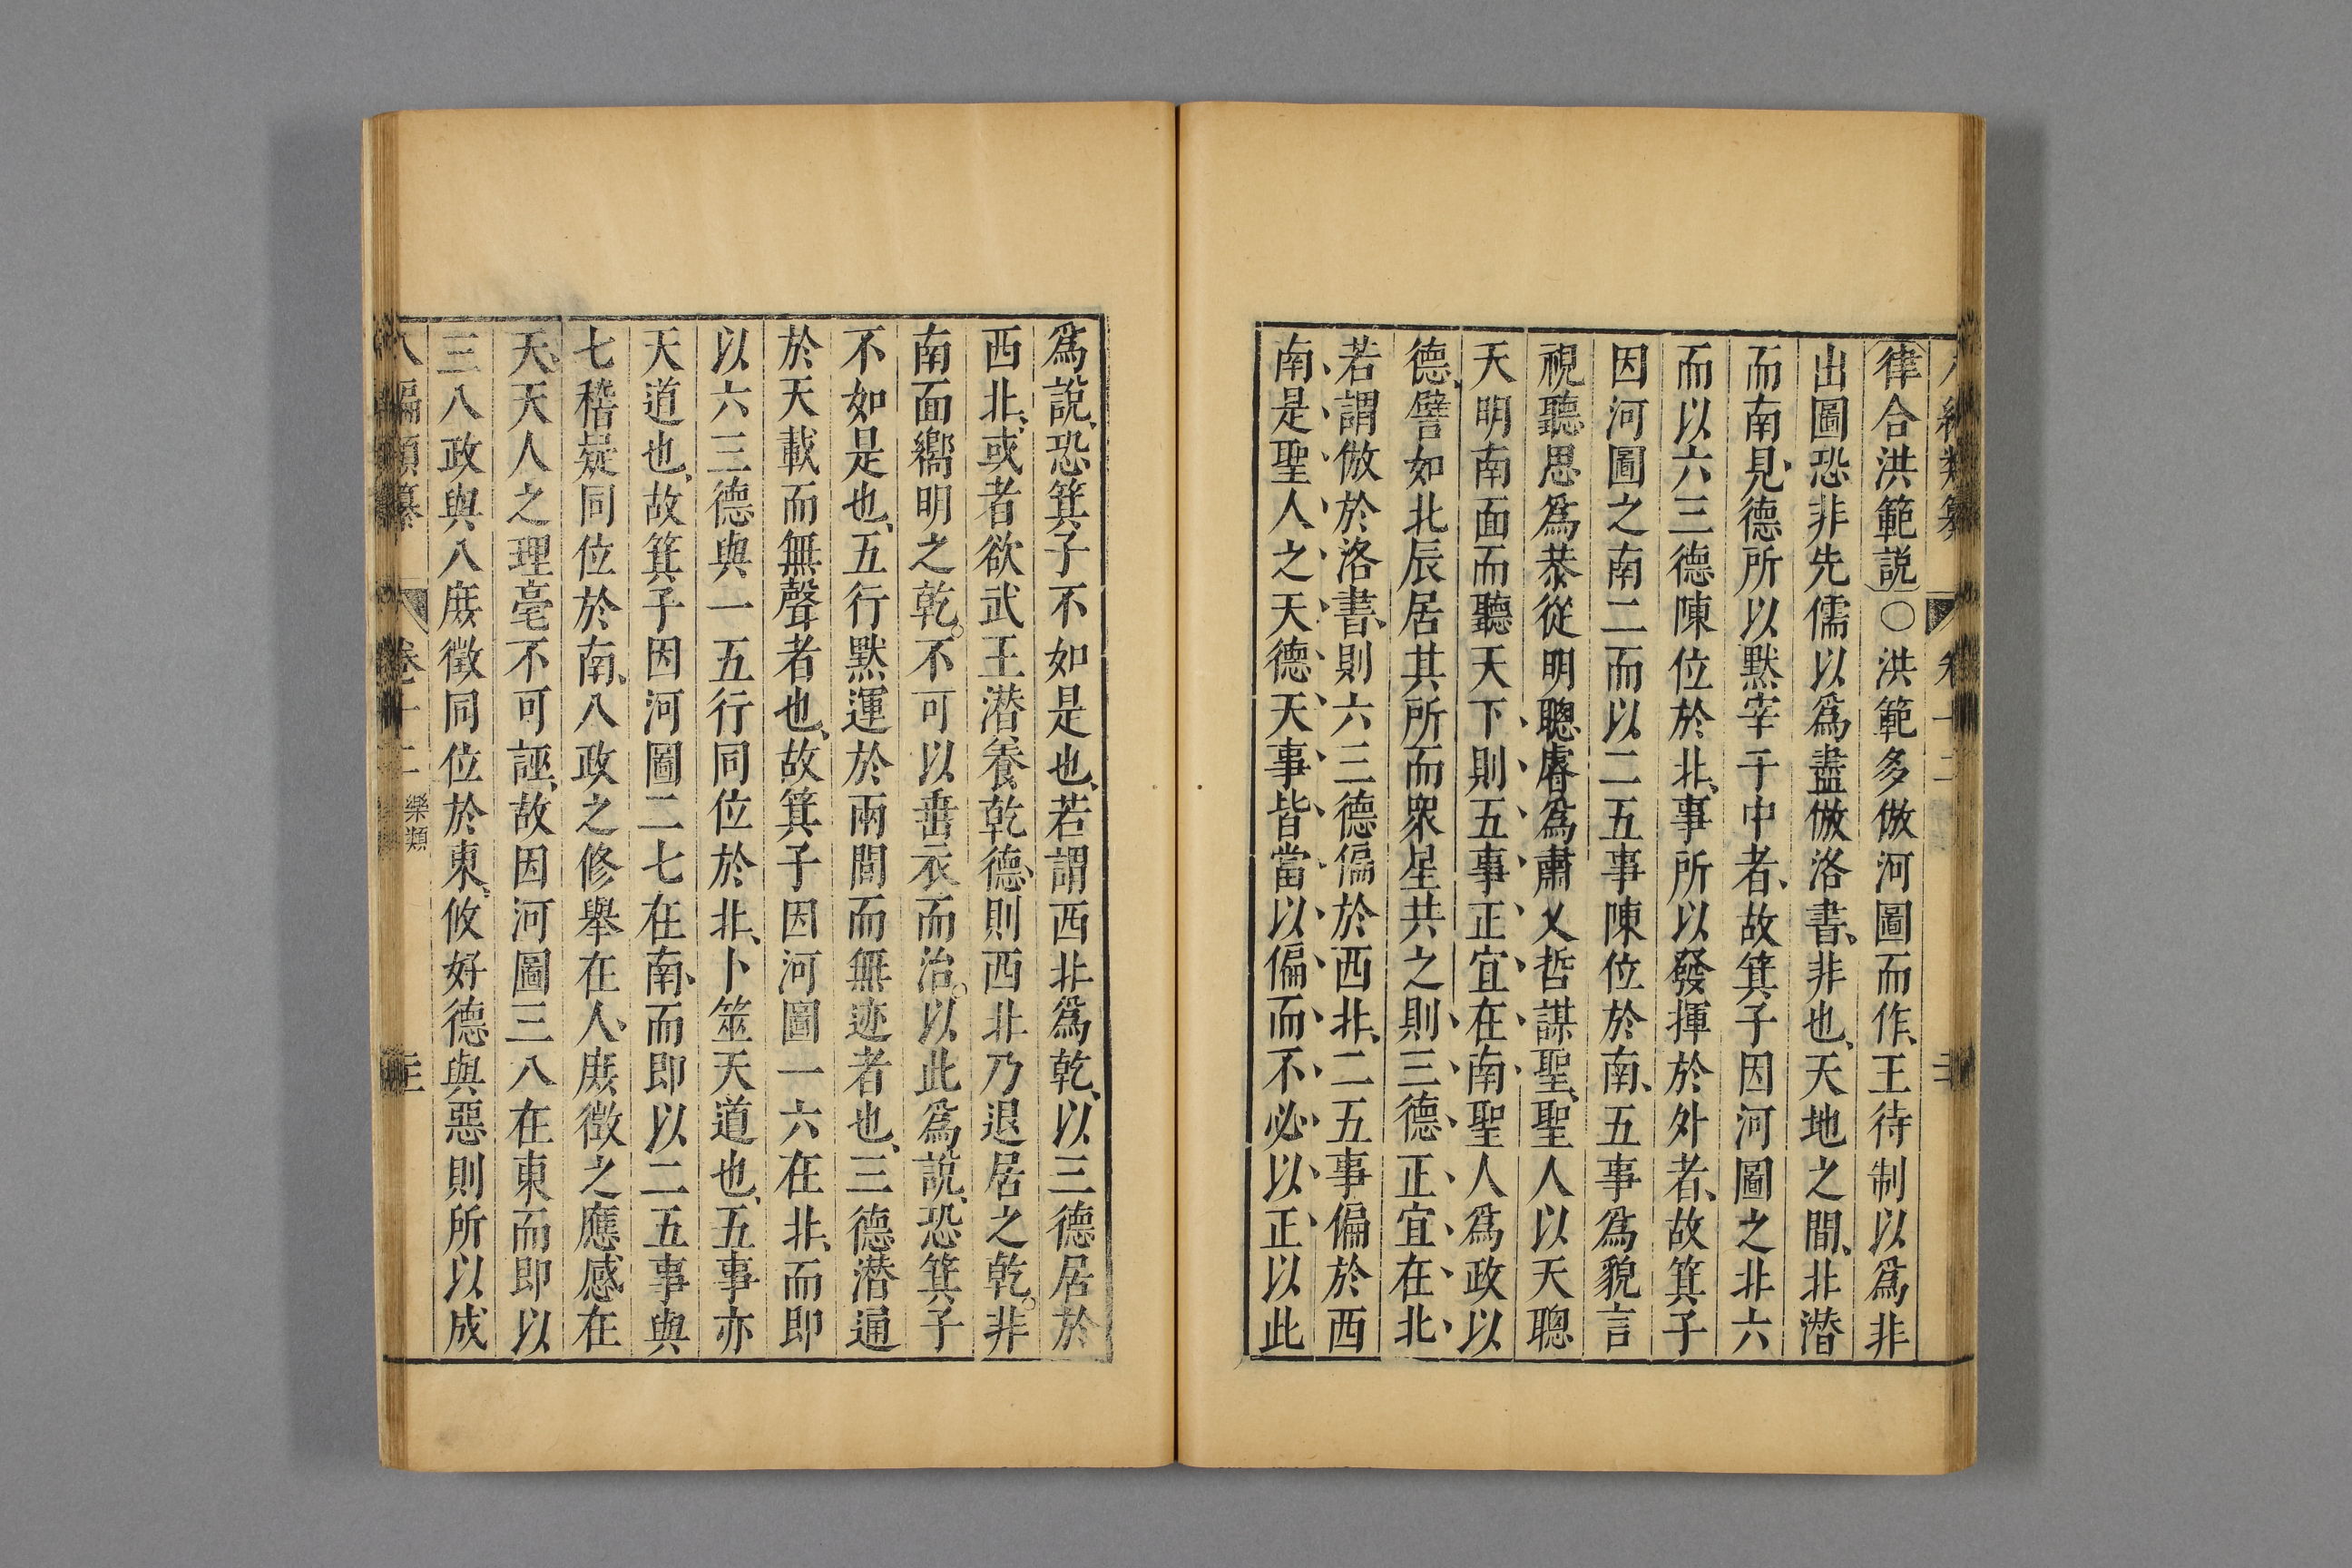 律合洪範説〇洪範多倣河圖而作、王待制以爲非
出圖恐非先儒以爲盡倣洛書、非也、天地之間、非潛
而南見、德所以默宰于中者、故箕子因河圖之北六
而以六三德陳位於北、事所以發揮於外者、故箕子
因河圖之南二而以二五事陳位於南、五事爲貌言
視聽思爲恭從明聰睿爲肅乂哲謀聖、聖人以天聰
天明南面而聽天下、則五事正宜在南聖人爲政以
德、譬如北辰居其所而衆星共之則三德正宜在北、
若謂倣於洛書、則六三德偏於西北、二五事偏於西
南是聖人之天德天事皆當以偏而不必以正以此
爲說、恐箕子不如是也、若謂西北爲乾、以三德居於
西北、或者欲武王潛養乾德、則西北乃退居之乾。非
南面嚮明之乾。不可以垂衣而治。以此爲說、恐箕子
不如是也、五行默運於兩間而無迹者也、三德潛通
於天載而無聲者也、故箕子因河圖一六在北、而即
以六三德與一五行同位於北、卜筮天道也、五事亦
天道也、故箕子因河圖二七在南、而即以二五事與
七稽疑同位於南、八政之修舉在人、庶徵之應感在
天、天人之理毫不可誣、故因河圖三八在東而即以
三八政與八庶徵同位於東、攸好德與惡則所以成
八編類纂 卷十二 樂類